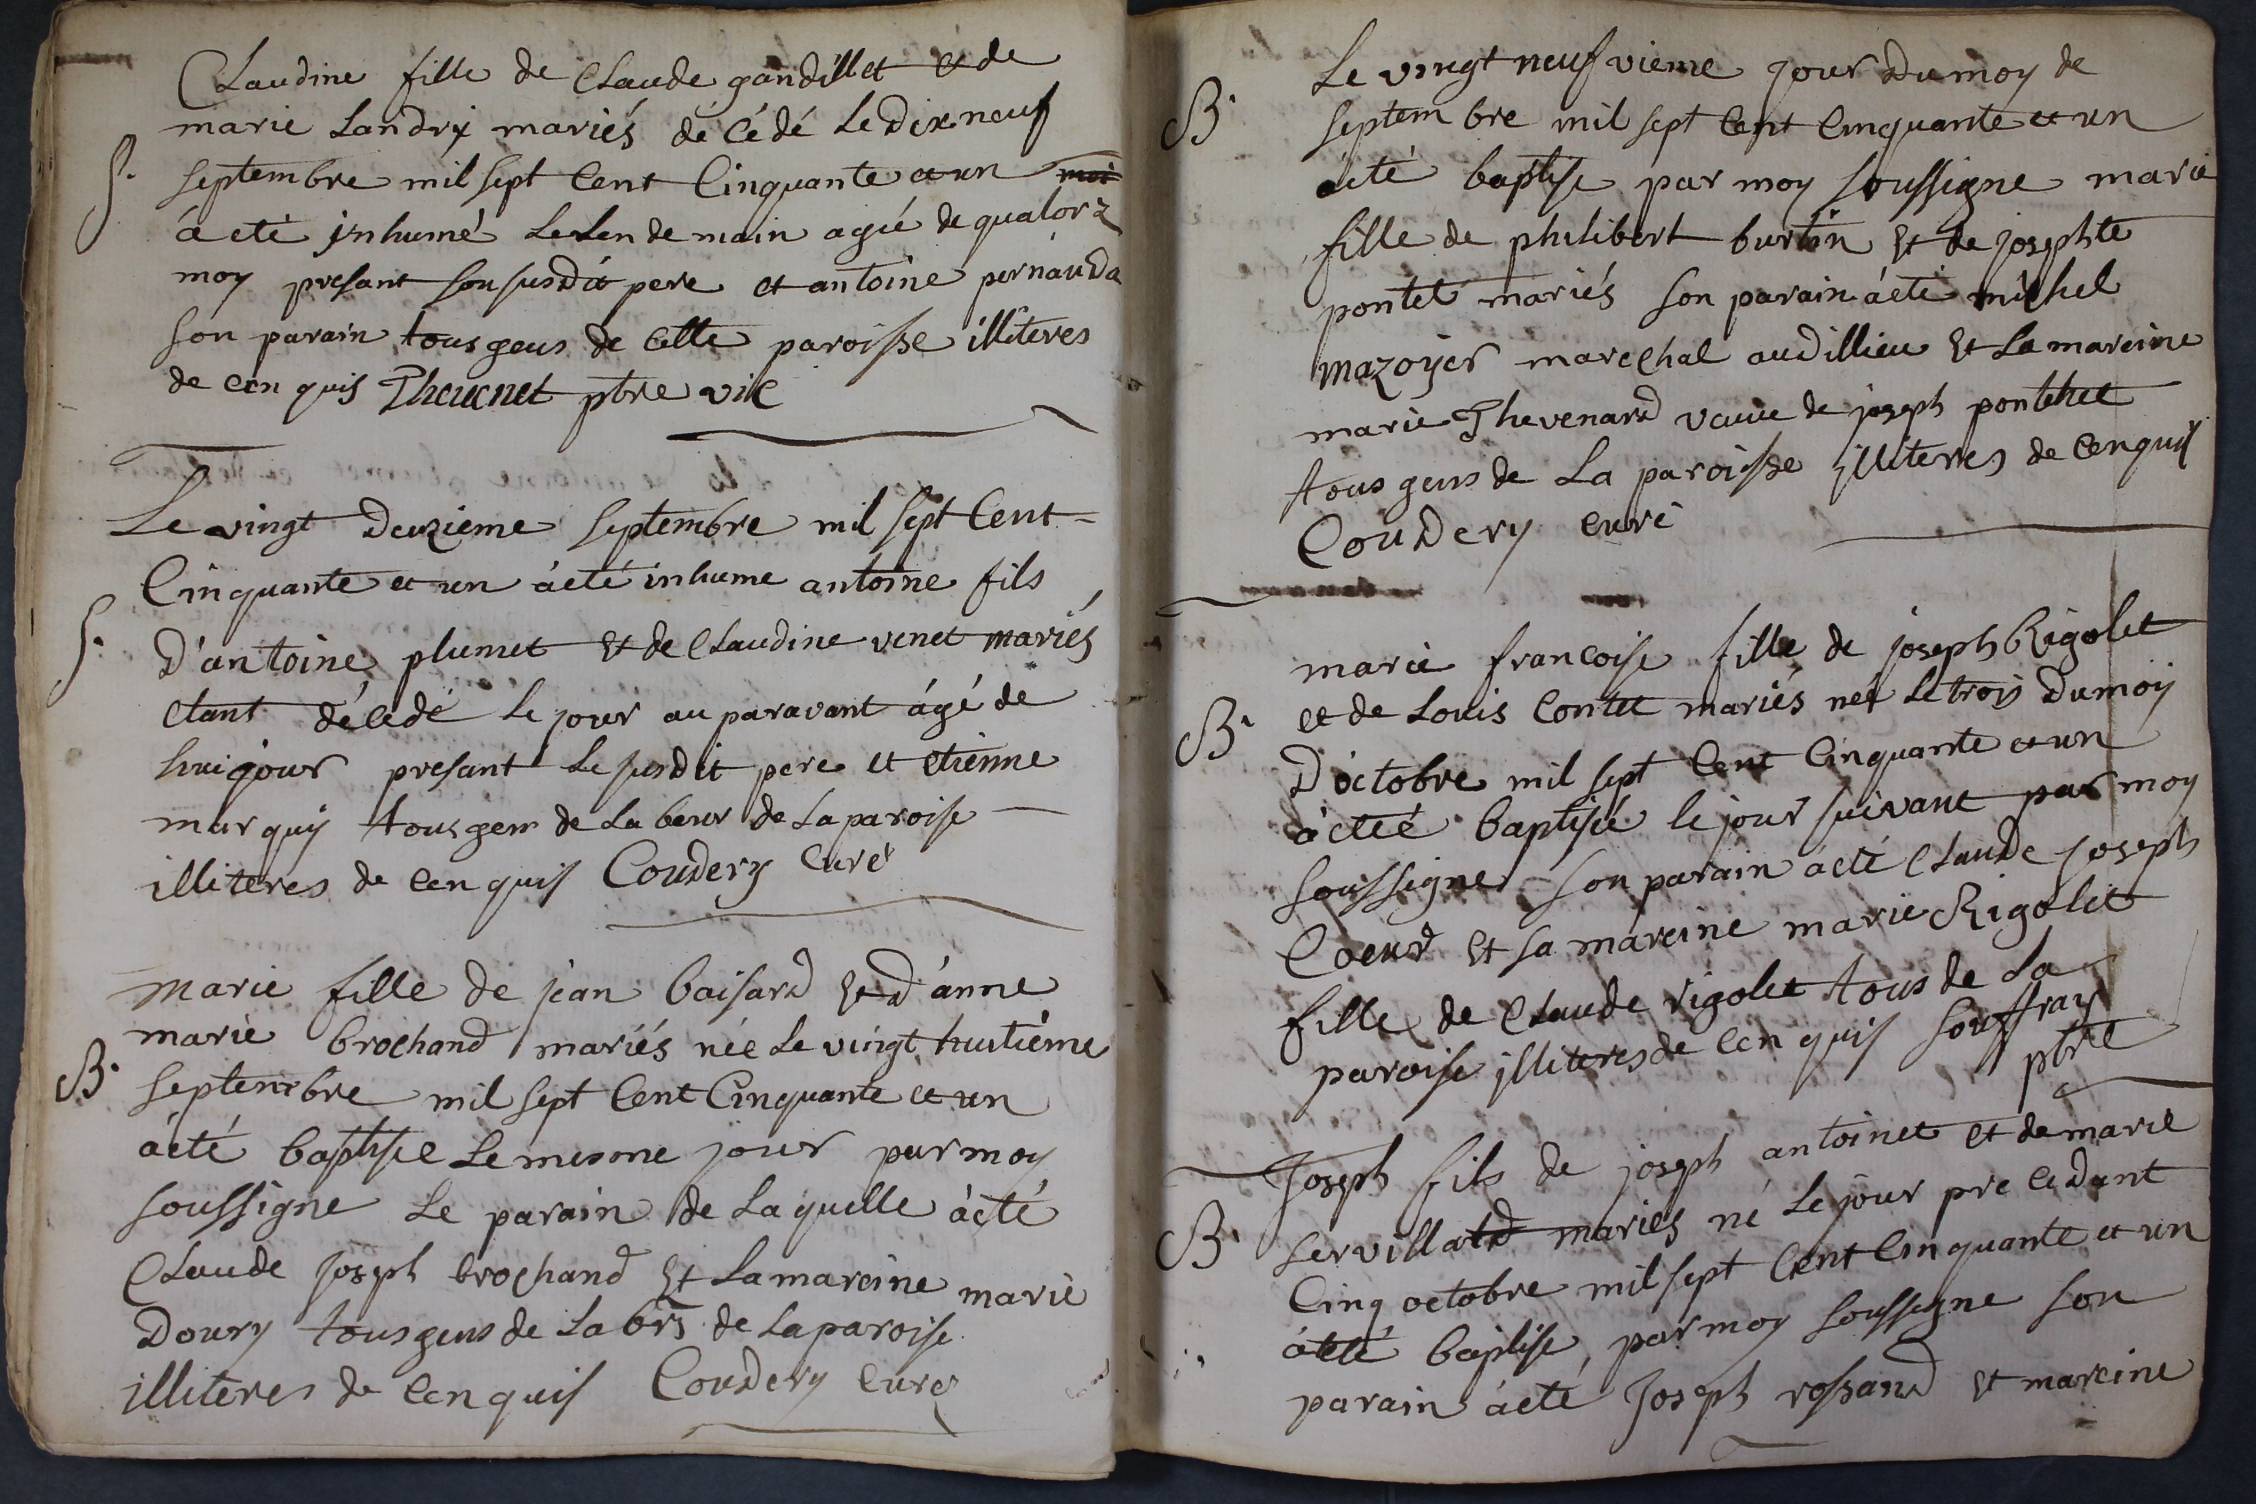 Claudine fille de Claude gandillet et de
marie Landry mariés décédé le Dix neuf
S. septembre mil sept Cent Cinquante et un moi
à eté inhumé Le Lendemain agié de quatorz
moy presant son susdit pere et antoine pernauda
son parain tous gens de cette paroisse illiteres
de cen quis Theuenet ptre vic
Le vingt Deuzieme septembre mil sept Cent
Cinquante et un à eté inhume antoine fils
S. D'antoine plumet Et de Claudine venet mariés
etant décedé le jour au paravant ágé de
huijour presant le susdit pere et etienne
marquis tous gens de Labeur de La paroise
illiteres de cen quis Coudery Curé
marie fille de jean baisard Et d'anne
marie brochand mariés née Le vingt huitiéme
B. septembre mil sept Cent Cinquante et un
à eté baptise Le mesme jour par moy
soussigne Le parain de Laquelle à eté
Claude joseph brochand Et La mareine marie
Doury tous gens de Labrs de La paroise
illiteres de cen quis Coudery Curé
Le vingt neuf vieme jour Du moy de
B. septembre mil sept Cent Cinquante et un
à eté baptise par moy soussigne marie
fille de philibert burtin Et de josephte
pontet mariés son parain à eté michel
mazoyer marechal audillieu Et La mareine
marie Thevenard veuve de joseph ponthet
tous gens de La paroisse illiteres de cenquis
Coudery curé
marie francoise fille de joseph Rigolet
B. et de Louis Contet mariés née Le trois Du moy
D'octobre mil sept Cent Cinquante et un
à eteé baptiseé le jour suivant par moy
soussigne son parain à eté Claude joseph
Coeur Et sa mareine marie Rigolet
fille de Claude rigolet tous de La
paroise illiteres de cen quis souffray
ptre
Joseph fils de joseph antoinet et de marie
B. servillatd mariés né Le jour precedant
Cinq octobre mil sept Cent Cinquante et un
à eté baptise, par moy soussigne son
parain à eté Joseph rossand Et mareine